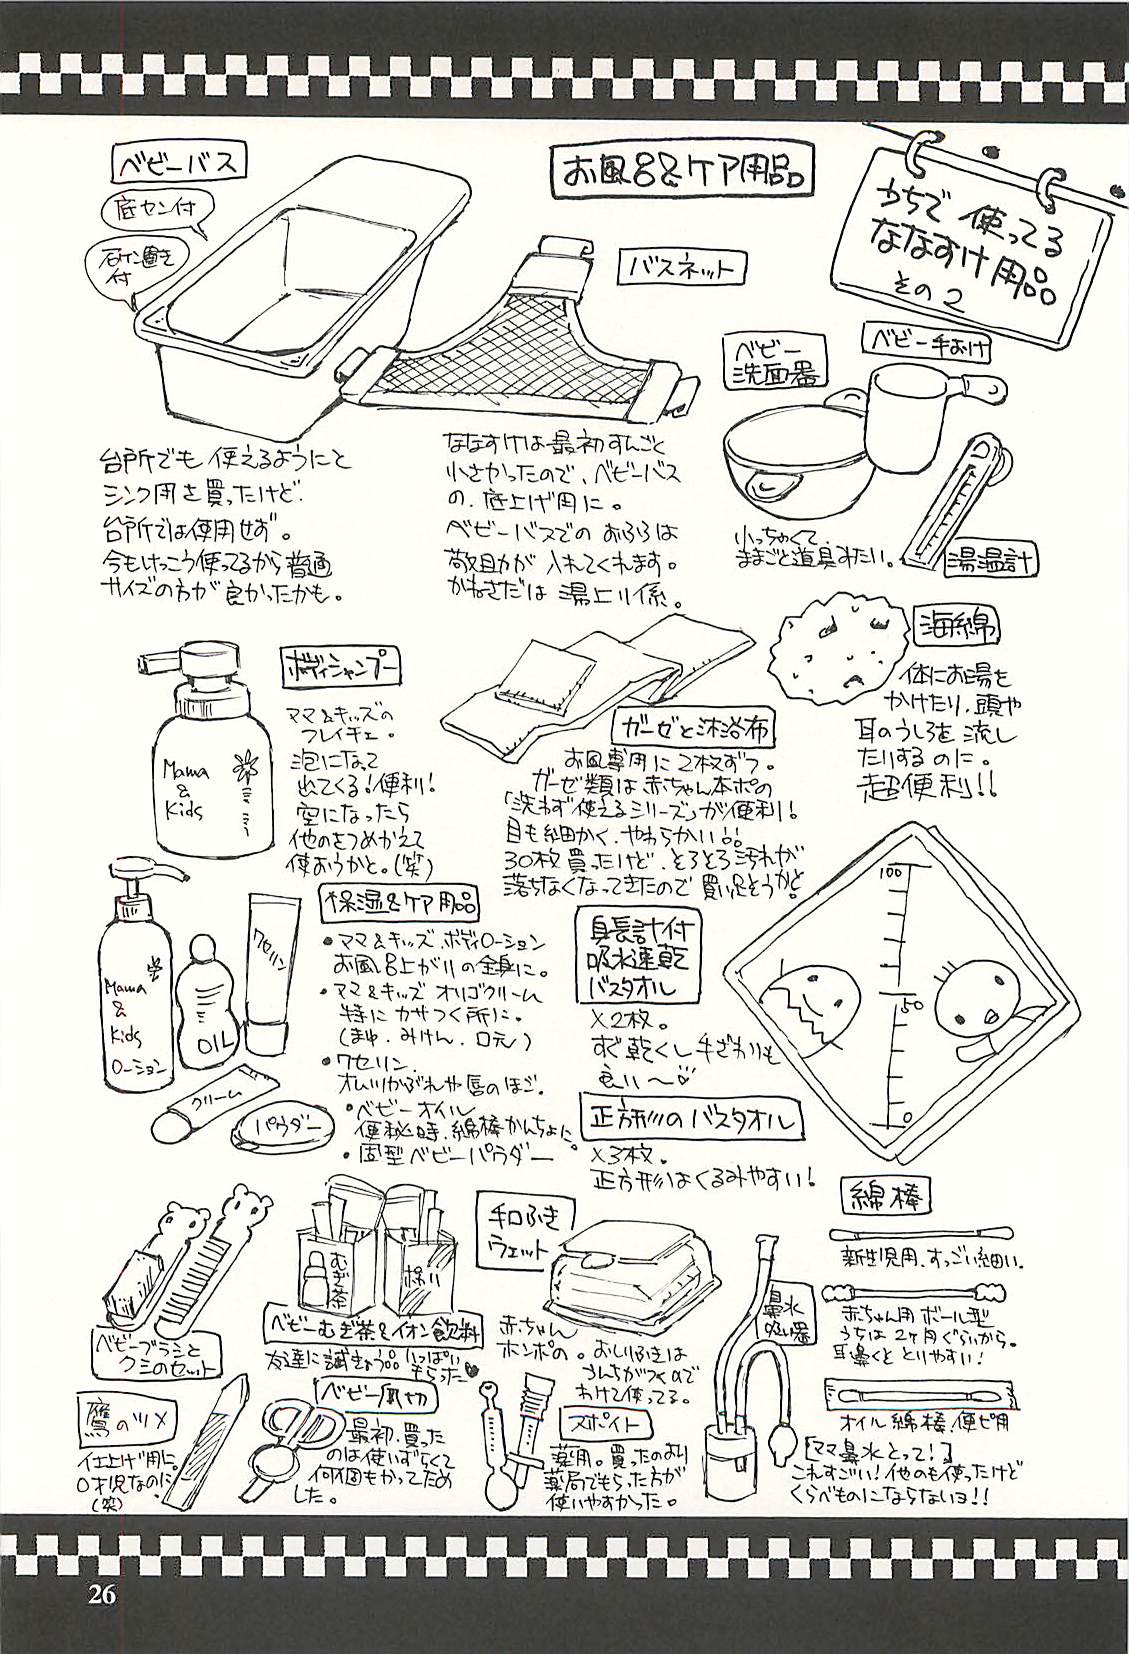 お風呂&ケア用品
うちで使ってる
ななすけ用品
その2
ベビーバス
底セン付
石ケン置き
付
台所でも使えるようにと
シンク用を買ったけど、
台所では使用せず。
今もけっこう使ってるから普通
サイズの方が良かったかも。
バスネット
ななすけは最初すんごく
小さかったので、ベビーバス
の、底上げ用に。
ベビーバスでのおふろは
敬助が入れてくれます。
かねさだは湯上り係。
ベビー
洗面器
ベビー手おけ
小っちゃくて、
ままごと道具みたい。
湯温計
海綿
体にお湯を
かけたり、頭や
耳のうしろを流し
たりするのに。
超便利!!
ボディシャンプー
Mama
&
Kids
ママ&キッズの
フレイチェ。
泡になって
出てくる!便利!
空になったら
他のをつめかえて
使おうかと。(笑)
ガーゼと沐浴布
お風呂専用に2枚ずつ。
ガーゼ類は赤ちゃん本ポの
「洗わず使えるシリーズ」が便利!
目も細かく、やわらかい
30枚買ったけど、とろとろ汚れが
落ちなくなってきたので買い足そうかと。
保湿&ケア用品
Mama
&
Kids
ローション
OIL
ワセリン
クリーム
パウダー
●ママ&キッズ ボディローション
お風呂上がりの全身に。
●ママ&キッズ オリゴクリーム
特にカサつく所に。
(まゆ、みけん、口元)
●ワセリン。
オムツかぶれや唇のほご。
●ベビーオイル
便秘時、綿棒かんちょに。
・固型ベビーパウダー
身長計付
吸水速乾
バスタオル
×2枚。
すぐ乾くし手ざわりも
良い〜♡
正方形のバスタオル
×3枚。
正方形はくるみやすい!
100
50
0
ベビーブラシと
クシのセット
むぎ茶
ベビーむぎ茶&イオン飲料
友達に試きょう品いっぱい
もらった♥
手口ふき
ウェット
赤ちゃん
ホンポの。おしりふきは
うんちがつくので
わけて使ってる。
鼻水
吸い器
綿棒
新生児用、すっごい細い。
赤ちゃん用ボール型
うちは2ヶ月ぐらいから。
耳鼻くそとりやすい!
オイル綿棒、便ピ用
[ママ鼻水とって!]
これすごい!他のも使ったけど
くらべものにならないヨ!!
鷹のツメ
仕上げ用に。
0才児なのに。
(笑)
ベビー爪切
最初、買った
のは使いずらくて
何個もかってため
した。
スポイト
薬用。買ったのより
薬局でもらった方が
使いやすかった。
26